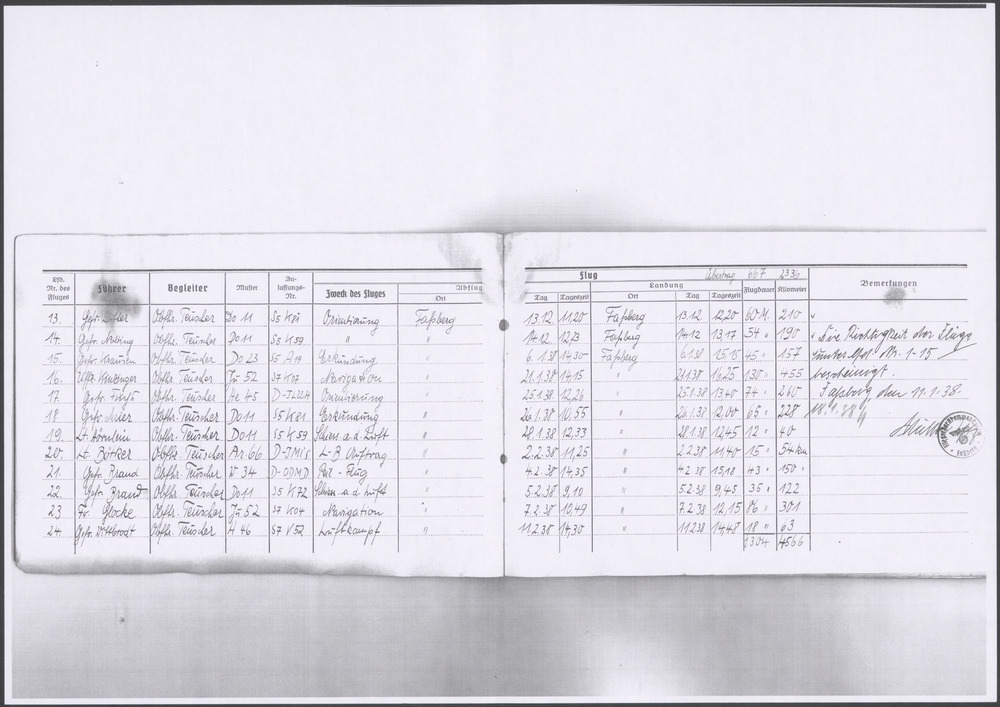 Flug
Übertrag 667 2336
Lfd. Nr. des Fluges Führer Begleiter Muster Zulassungs-Nr. Zweck des Fluges Abflug Ort Tag Tageszeit Landung Ort Tag Tageszeit Flugdauer Kilometer Bemerkungen
13. Gefr. Obfhr. Teuscher Do 11 S5 K81 Orientierung Faßberg 13.12. 11,20 Faßberg 13.12. 12,20 60 M. 210 "
14. Gefr. Obfhr. Teuscher Do 11 S5 K59 " " 14.12. Faßberg 14.12. 13,17 54 " 190 " Die Richtigkeit der Flüge
15. Gefr. Obfhr. Teuscher Do 23 S5 A19 Erkundung " 6.1.38 14,30 Faßberg 6.1.38 15,15 45 " 157 unter lfd. Nr. 1-15
16. Uffz. Obfhr. Teuscher Ju 52 S7 K07 Navigation " 21.1.38 14,15 " 21.1.38 16,25 130 " 455 bescheinigt.
17. Gefr. Obfhr. Teuscher Orientierung " 25.1.38 12,26 " 25.1.38 13,40 74 " 260 Faßberg den 11.1.38.
18. Gefr. Obfhr. Teuscher Do 11 S5 K81 Erkundung " 26.1.38 10,55 " 26.1.38 12,00 65 " 228
19. Lt. Obfhr. Teuscher Do 11 S5 K59 Schies. a. d. Luft " 28.1.38 12,33 " 28.1.38 12,45 12 " 40
20. Lt. Bötker Obfhr. Teuscher Ar 66 L-B Auftrag " 2.2.38 11,25 " 2.2.38 11,40 15 " 54 km
21. Gefr. Brand Obfhr. Teuscher W 34 D-ODMD " 4.2.38 14,35 " 4.2.38 15,18 43 " 150 "
22. Gefr. Brand Obfhr. Teuscher Do 11 S5 K72 Schies. a. d. Luft " 5.2.38 9,10 " 5.2.38 9,45 35 " 122
23 Fr. Obfhr. Teuscher Ju 52 S7 K04 Navigation " 7.2.38 10,49 " 7.2.38 12,15 86 " 301
24. Gefr. Wittbrodt Obfhr. Teuscher H 46 S7 V52 Luftkampf " 11.2.38 14,30 " 11.2.38 14,48 18 " 63
1304 4566